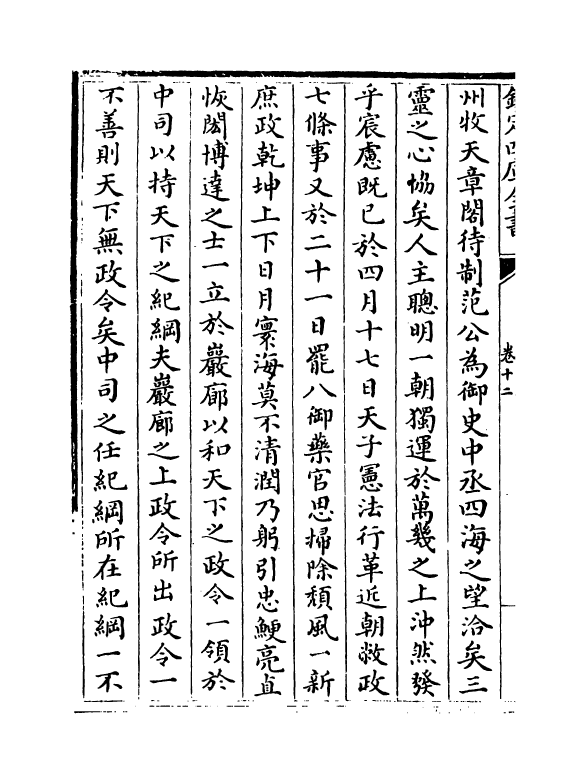 欽定四庫全書
卷十二
州牧天章閣待制范公為御史中丞四海之望洽矣三
靈之心協矣人主聰明一朝獨運於萬幾之上沖然發
乎宸慮既已於四月十七日天子憲法行革近朝敝政
七條事又於二十一日罷八御藥官思掃除頽風一新
庶政乾坤上下日月寰海莫不清潤乃躬引忠鯁亮直
恢閎博達之士一立於巖廊以和天下之政令一領於
中司以持天下之紀綱夫巖廊之上政令所出政令一
不善則天下無政令矣中司之任紀綱所在紀綱一不